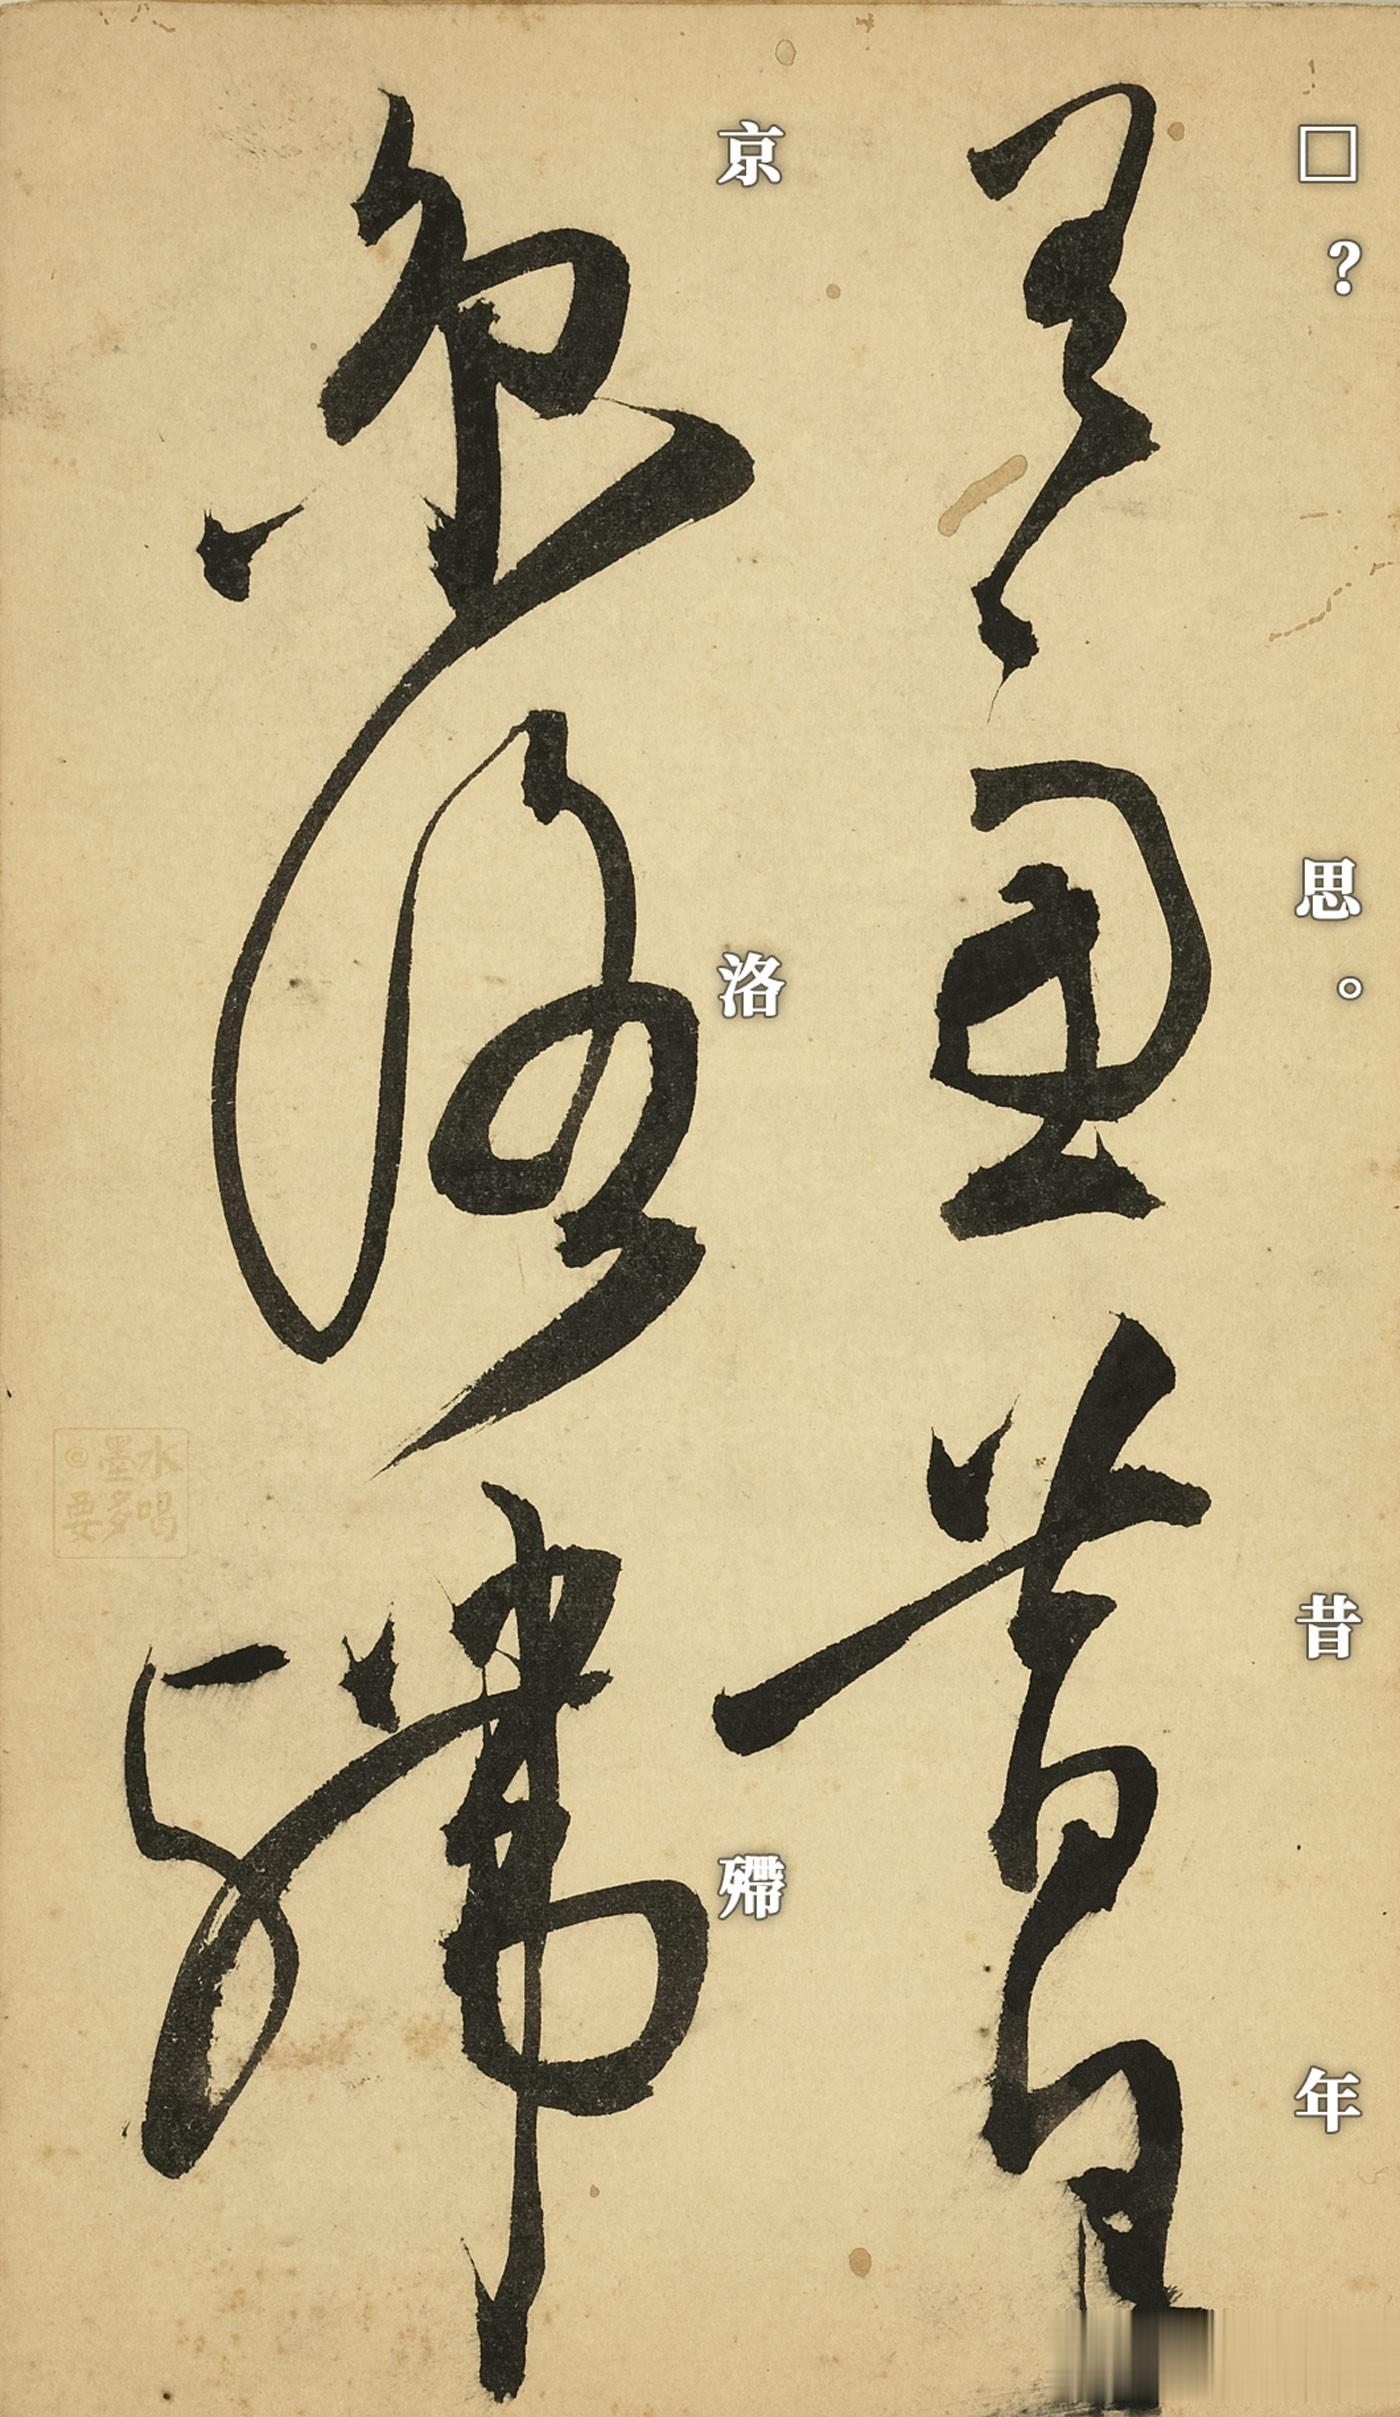 □？思。昔年
京洛殢
@墨水
要多喝